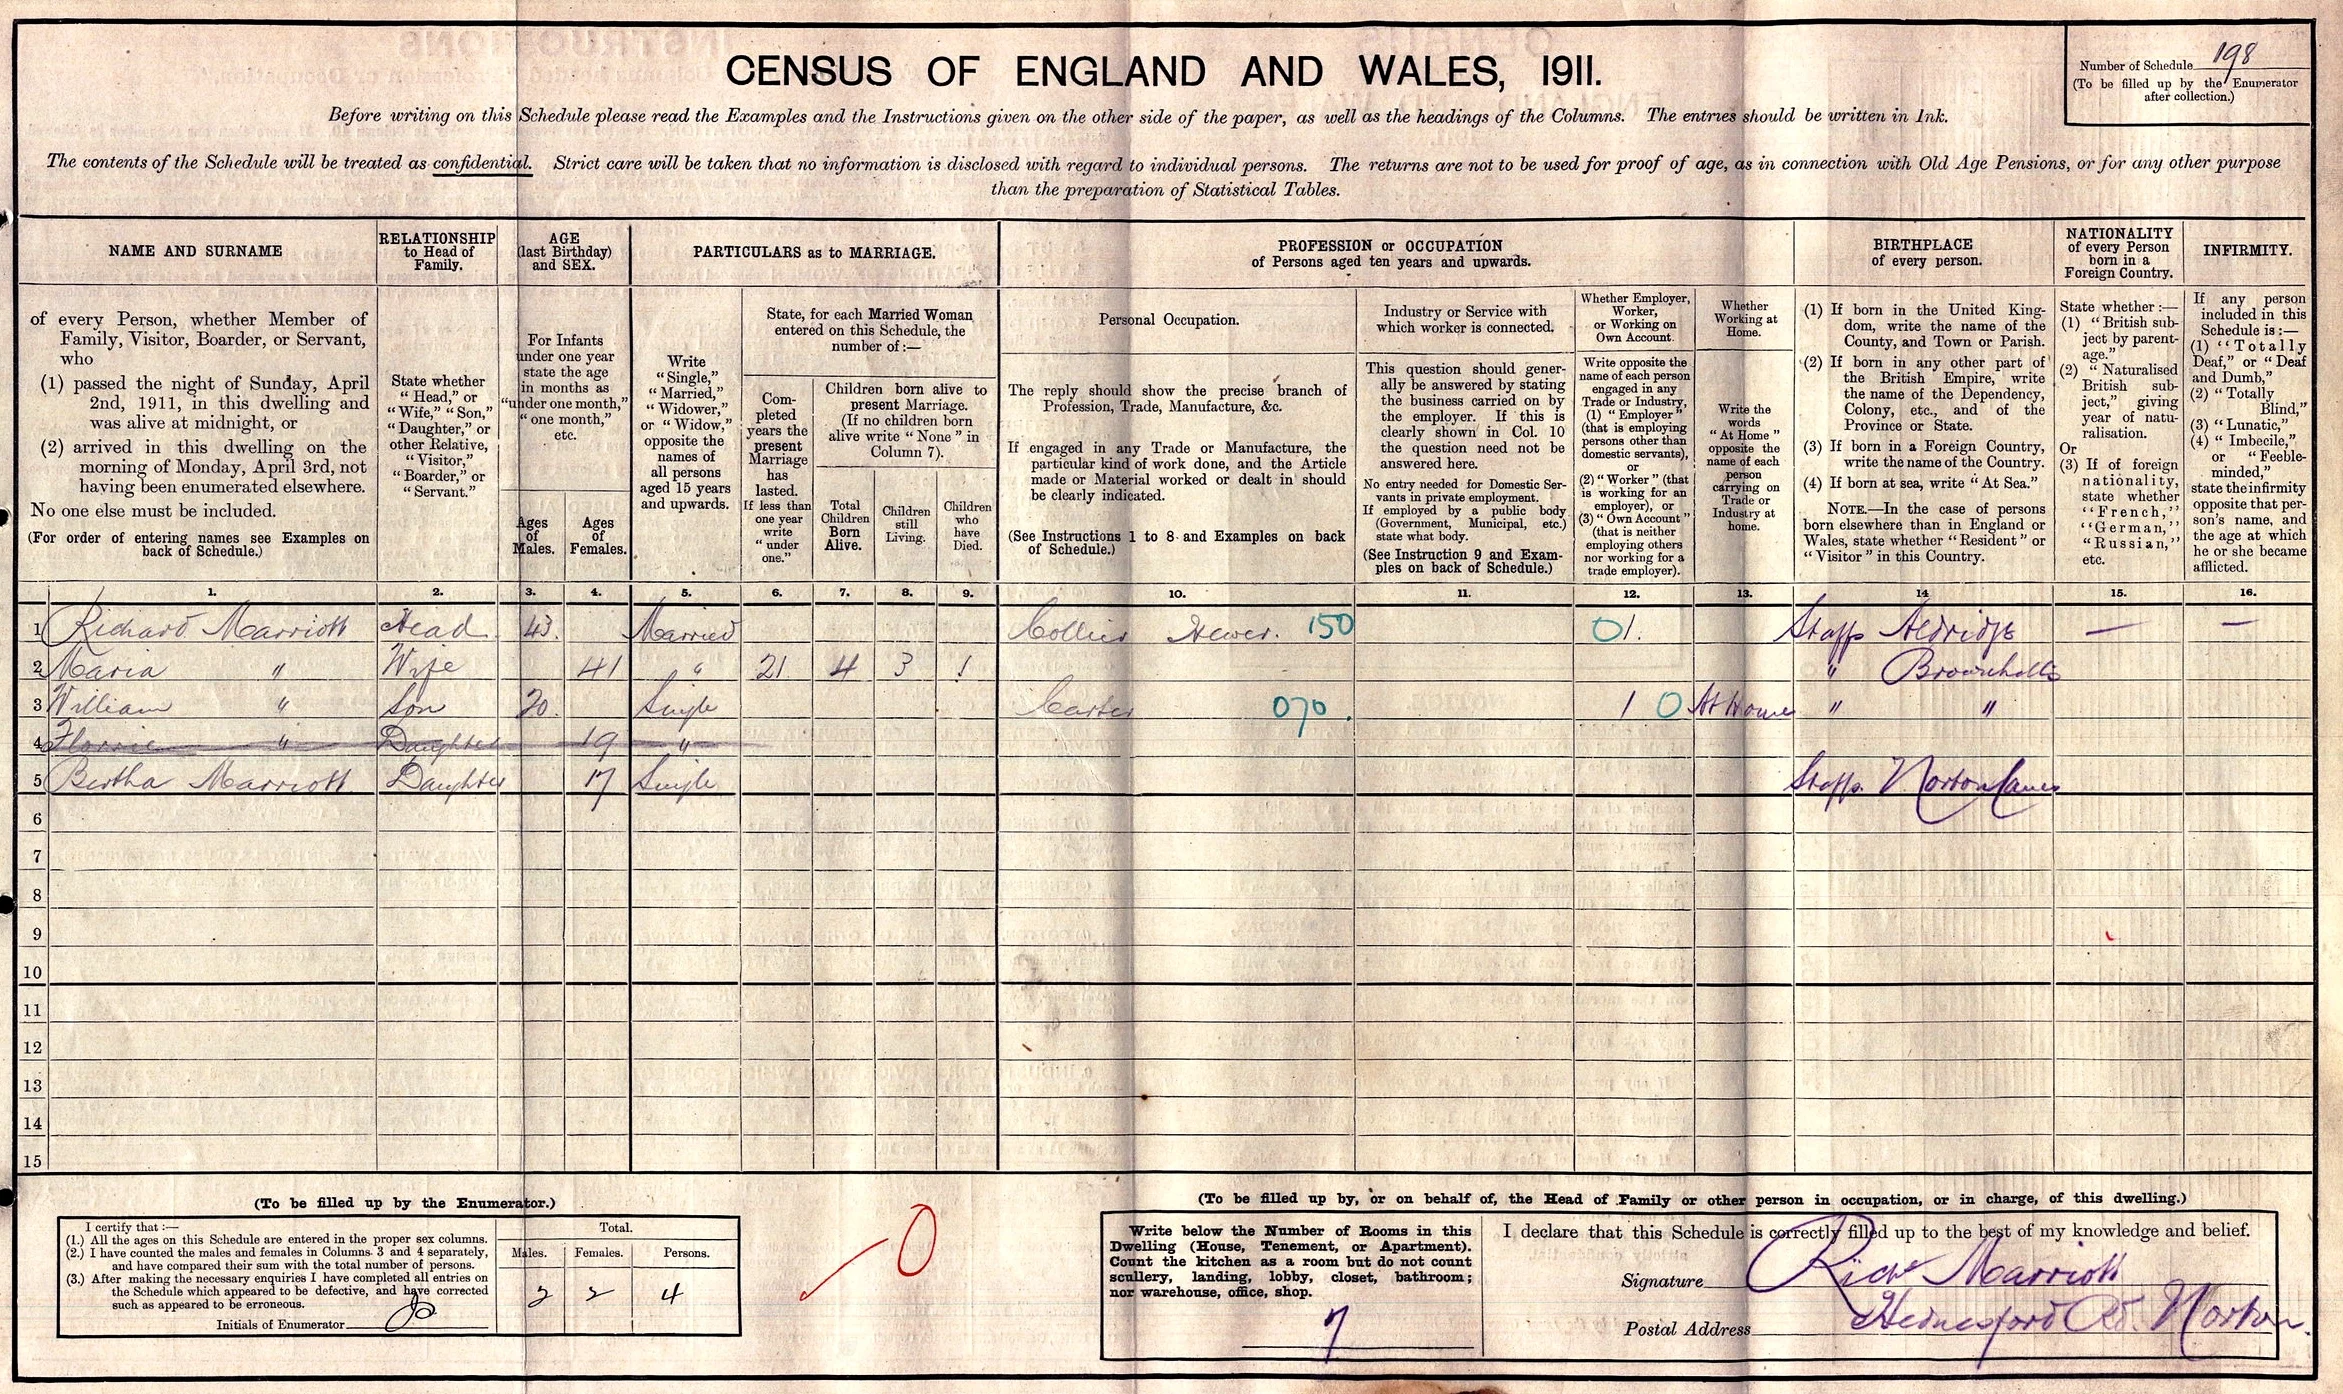 CENSUS OF ENGLAND AND WALES, 1911.
Number of Schedule 198
(To be filled up by the Enumerator
after collection.)
Before writing on this Schedule please read the Examples and the Instructions given on the other side of the paper, as well as the headings of the Columns. The entries should be written in Ink.
The contents of the Schedule will be treated as confidential. Strict care will be taken that no information is disclosed with regard to individual persons. The returns are not to be used for proof of age, as in connection with Old Age Pensions, or for any other purpose
than the preparation of Statistical Tables.
NAME AND SURNAME
of every Person, whether Member of
Family, Visitor, Boarder, or Servant,
who
(1) passed the night of Sunday, April
2nd, 1911, in this dwelling and
was alive at midnight, or
(2) arrived in this dwelling on the
morning of Monday, April 3rd, not
having been enumerated elsewhere.
No one else must be included.
(For order of entering names see Examples on
back of Schedule.)
RELATIONSHIP
to Head of
Family.
State whether
"Head," or
"Wife," "Son,"
"Daughter," or
other Relative,
"Visitor,"
"Boarder," or
"Servant."
AGE
(last Birthday)
and SEX.
For Infants
under one year
state the age
in months as
"under one month,"
"one month,"
etc.
Ages
of
Males.
Ages
of
Females.
PARTICULARS as to MARRIAGE.
Write
"Single,"
"Married,"
"Widower,"
or "Widow,"
opposite the
names of
all persons
aged 15 years
and upwards.
State, for each Married Woman
entered on this Schedule, the
number of:—
Com-
pleted
years the
present
Marriage
has
lasted.
If less than
one year
write
"under
one."
Children born alive to
present Marriage.
(If no children born
alive write "None" in
Column 7).
Total
Children
Born
Alive.
Children
still
Living.
Children
who
have
Died.
PROFESSION or OCCUPATION
of Persons aged ten years and upwards.
Personal Occupation.
The reply should show the precise branch of
Profession, Trade, Manufacture, &c.
If engaged in any Trade or Manufacture, the
particular kind of work done, and the Article
made or Material worked or dealt in should
be clearly indicated.
(See Instructions 1 to 8 and Examples on back
of Schedule.)
Industry or Service with
which worker is connected.
This question should gener-
ally be answered by stating
the business carried on by
the employer. If this is
clearly shown in Col. 10
the question need not be
answered here.
No entry needed for Domestic Ser-
vants in private employment.
If employed by a public body
(Government, Municipal, etc.)
state what body.
(See Instruction 9 and Exam-
ples on back of Schedule.)
Whether Employer,
Worker,
or Working on
Own Account.
Write opposite the
name of each person
engaged in any
Trade or Industry,
(1) "Employer"
(that is employing
persons other than
domestic servants),
or
(2) "Worker" (that
is working for an
employer), or
(3) "Own Account"
(that is neither
employing others
nor working for a
trade employer).
Whether
Working at
Home.
Write the
words
"At Home"
opposite the
name of each
person
carrying on
Trade or
Industry at
home.
BIRTHPLACE
of every person.
(1) If born in the United King-
dom, write the name of the
County, and Town or Parish.
(2) If born in any other part of
the British Empire, write
the name of the Dependency,
Colony, etc., and of the
Province or State.
(3) If born in a Foreign Country,
write the name of the Country.
(4) If born at sea, write "At Sea."
NOTE.—In the case of persons
born elsewhere than in England or
Wales, state whether "Resident" or
"Visitor" in this Country.
NATIONALITY
of every Person
born in a
Foreign Country.
State whether:—
(1) "British sub-
ject by parent-
age."
(2) "Naturalised
British sub-
ject," giving
year of natu-
ralisation.
Or
(3) If of foreign
nationality,
state whether
"French,"
"German,"
"Russian,"
etc.
INFIRMITY.
If any person
included in this
Schedule is:—
(1) "Totally
Deaf," or "Deaf
and Dumb,"
(2) "Totally
Blind,"
(3) "Lunatic,"
(4) "Imbecile,"
or "Feeble-
minded,"
state the infirmity
opposite that per-
son's name, and
the age at which
he or she became
afflicted.
1. 2. 3. 4. 5. 6. 7. 8. 9. 10. 11. 12. 13. 14 15. 16.
1 Richard Marriott Head 43. Married Collier Hewer. 150 01. Staffs Aldridge — —
2 Maria " Wife 41 " 21 4 3 1 " Brownhills
3 William " Son 20. Single Carter 070. 1 0 At Home " "
4 Florrie " Daughter 19 "
5 Bertha Marriott Daughter 17 Single Staffs Norton Canes
6
7
8
9
10
11
12
13
14
15
(To be filled up by the Enumerator.)
I certify that:—
(1.) All the ages on this Schedule are entered in the proper sex columns.
(2.) I have counted the males and females in Columns 3 and 4 separately,
and have compared their sum with the total number of persons.
(3.) After making the necessary enquiries I have completed all entries on
the Schedule which appeared to be defective, and have corrected
such as appeared to be erroneous.
Initials of Enumerator
Total.
Males. Females. Persons.
2 2 4
0
(To be filled up by, or on behalf of, the Head of Family or other person in occupation, or in charge, of this dwelling.)
Write below the Number of Rooms in this
Dwelling (House, Tenement, or Apartment).
Count the kitchen as a room but do not count
scullery, landing, lobby, closet, bathroom;
nor warehouse, office, shop.
7
I declare that this Schedule is correctly filled up to the best of my knowledge and belief.
Signature Richd Marriott
Postal Address Hednesford Rd. Norton.